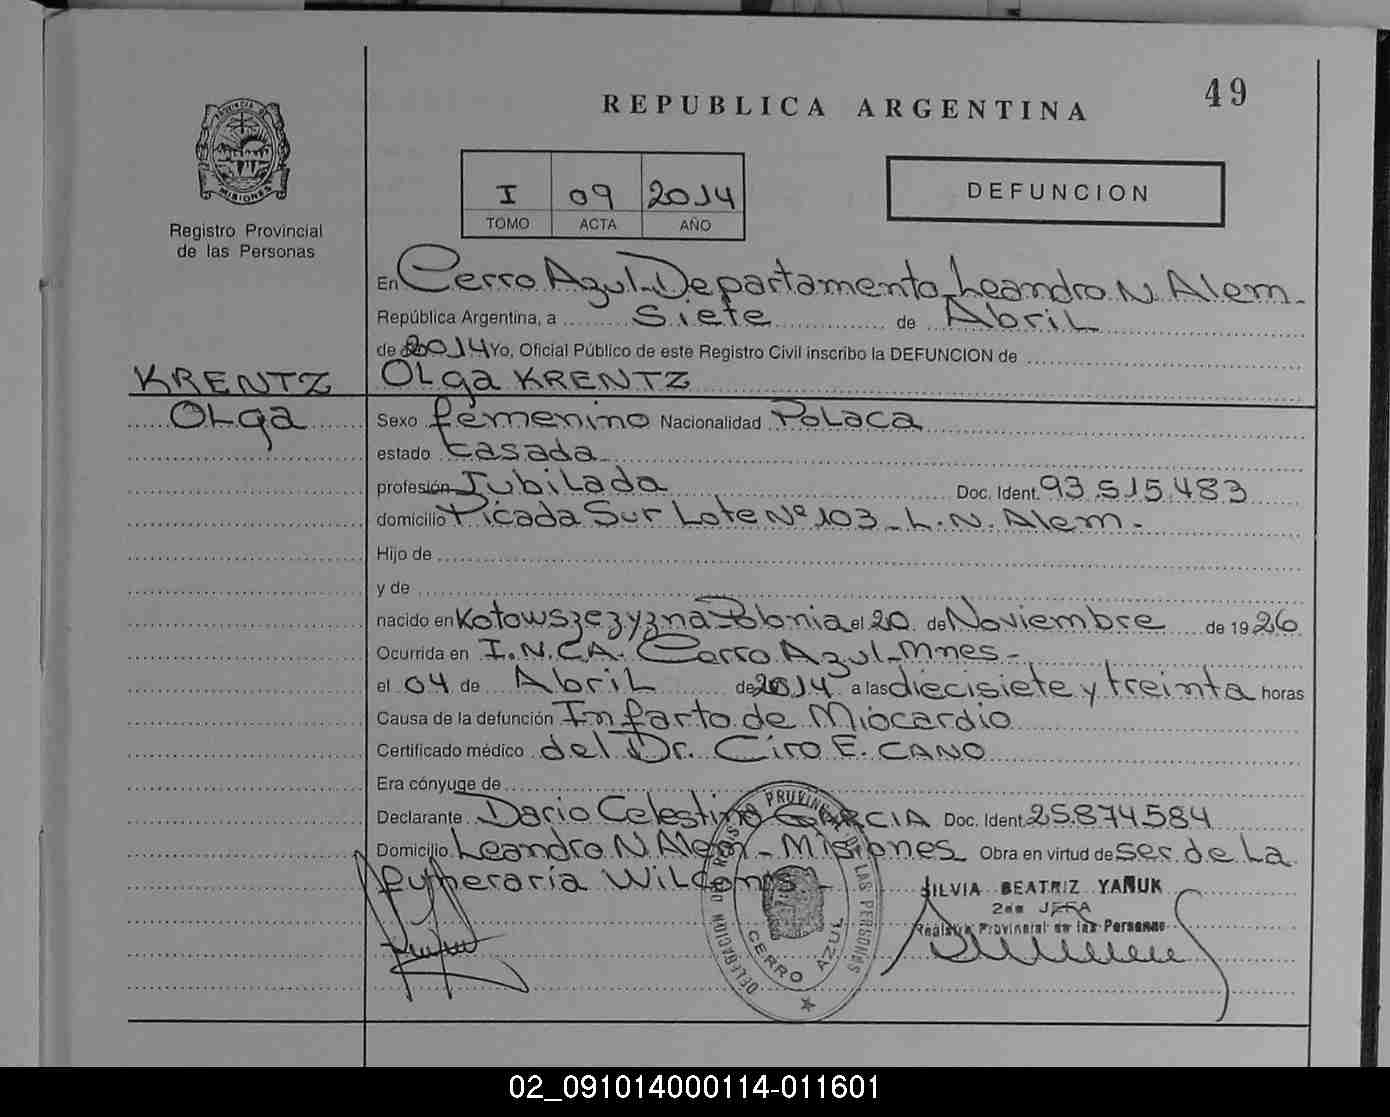 49
REPUBLICA ARGENTINA
PROVINCIA DE MISIONES
Registro Provincial
de las Personas
I 09 2014
TOMO ACTA AÑO
DEFUNCION
En Cerro Azul_Departamento Leandro N. Alem_
República Argentina, a siete de Abril
de 2014 Yo, Oficial Público de este Registro Civil inscribo la DEFUNCION de
KRENTZ Olga KRENTZ
Olga Sexo femenino Nacionalidad Polaca
estado casada
profesión Jubilada Doc. Ident. 93.515.483
domicilio Picada Sur Lote Nº 103_L.N. Alem.
Hijo de
y de
nacido en Kotowszezyzna Polonia el 20 de Noviembre de 1926
Ocurrida en I.N.C.A. Cerro Azul_Mnes_
el 04 de Abril de 2014 a las diecisiete y treinta horas
Causa de la defunción Infarto de Miocardio
Certificado médico del Dr. Ciro E. CANO
Era cónyuge de
Declarante Dario Celestino GARCIA Doc. Ident. 25.874.584
Domicilio Leandro N Alem_Misiones Obra en virtud de ser de la
funeraria Wilcoms_
SILVIA BEATRIZ YAÑUK
2da JEFA
Registro Provincial de las Personas
DELEGACION DEL REGISTRO PROVINCIAL DE LAS PERSONAS
CERRO AZUL
02_091014000114-011601